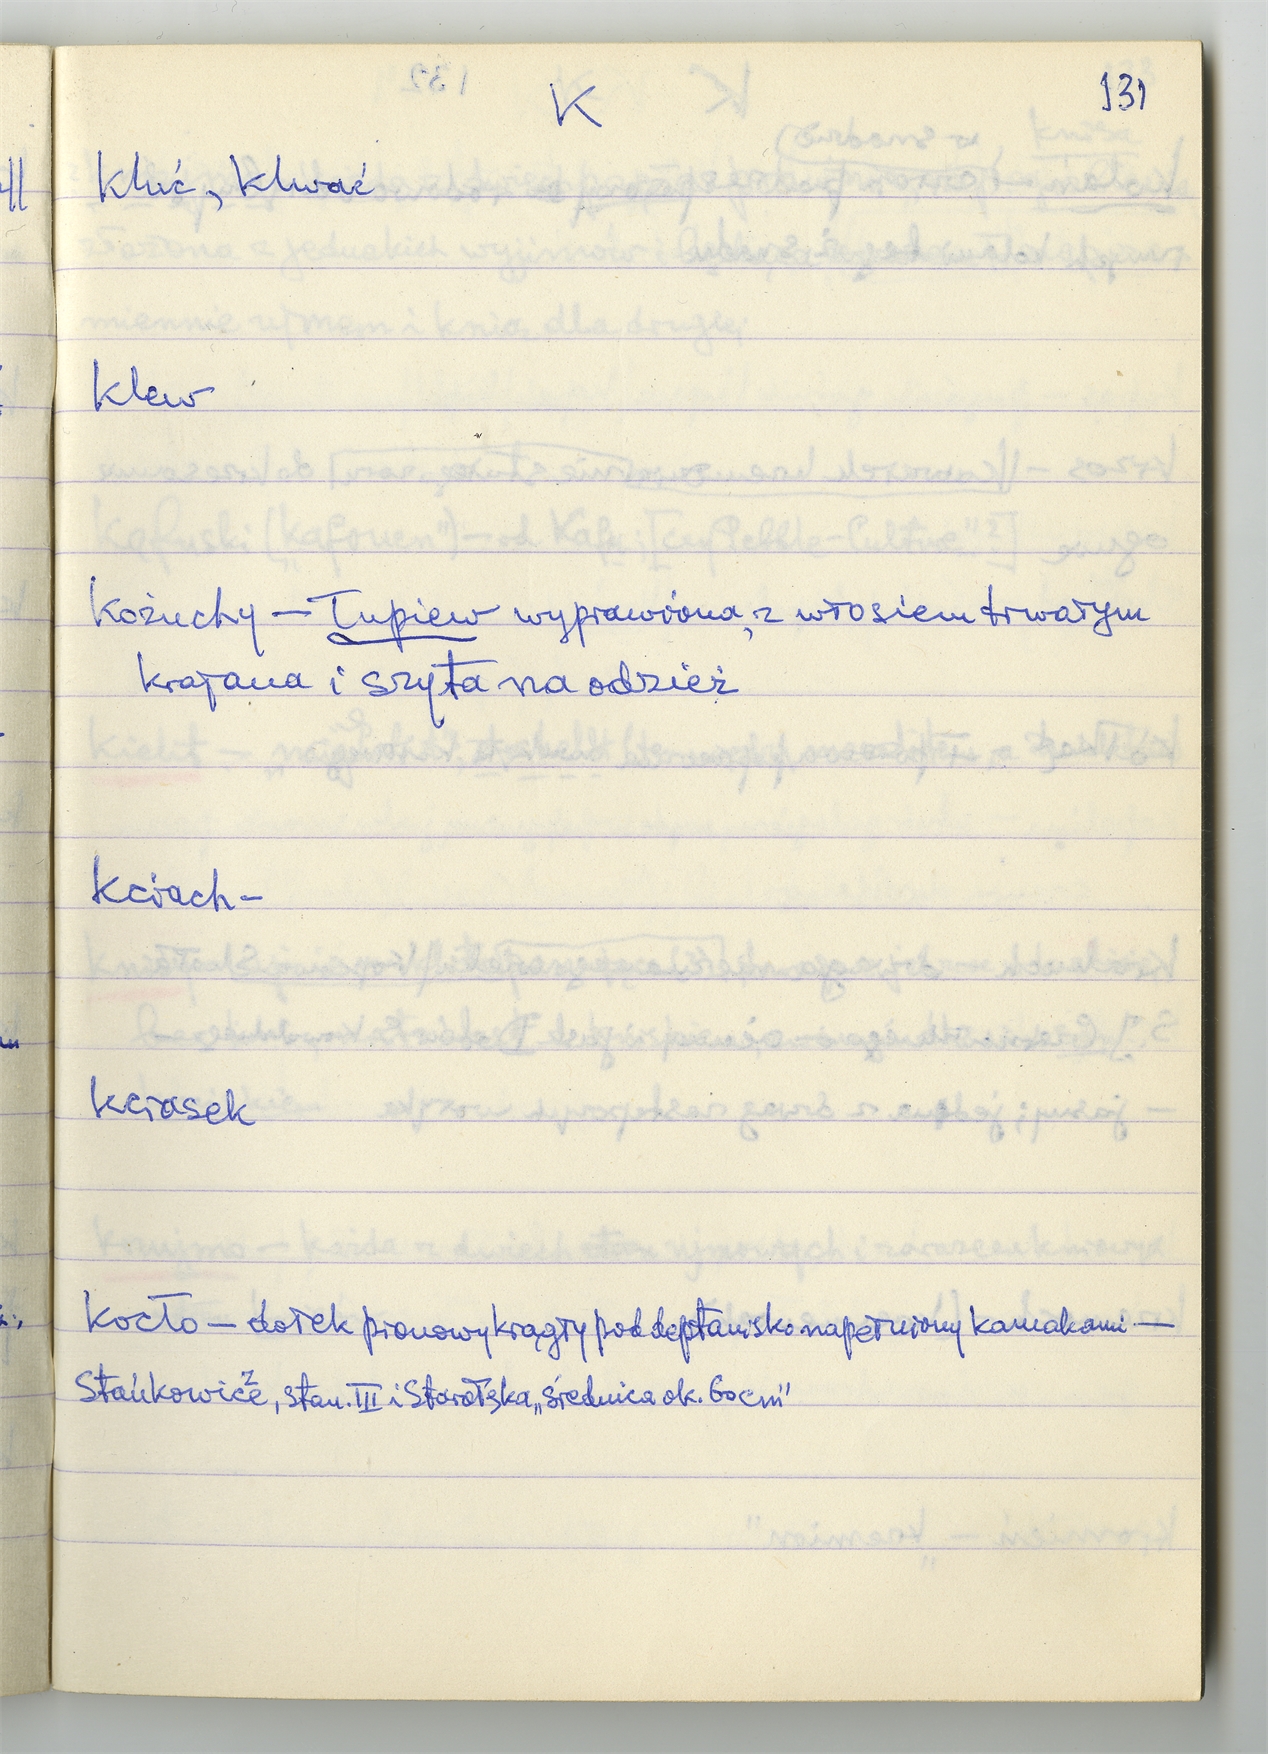 K
131
Kluć, Kluvać
Klew
Kożuchy — Łupiew wyprawiona, z włosiem trwałym
krajana i szyta na odzież
Kciach-
Kciasek
Kocło — dołek pionowy krągły pod deptanisko napełniony kamakami —
Stańkowiče, stan. III i Starołska „średnica ok. 60cm"